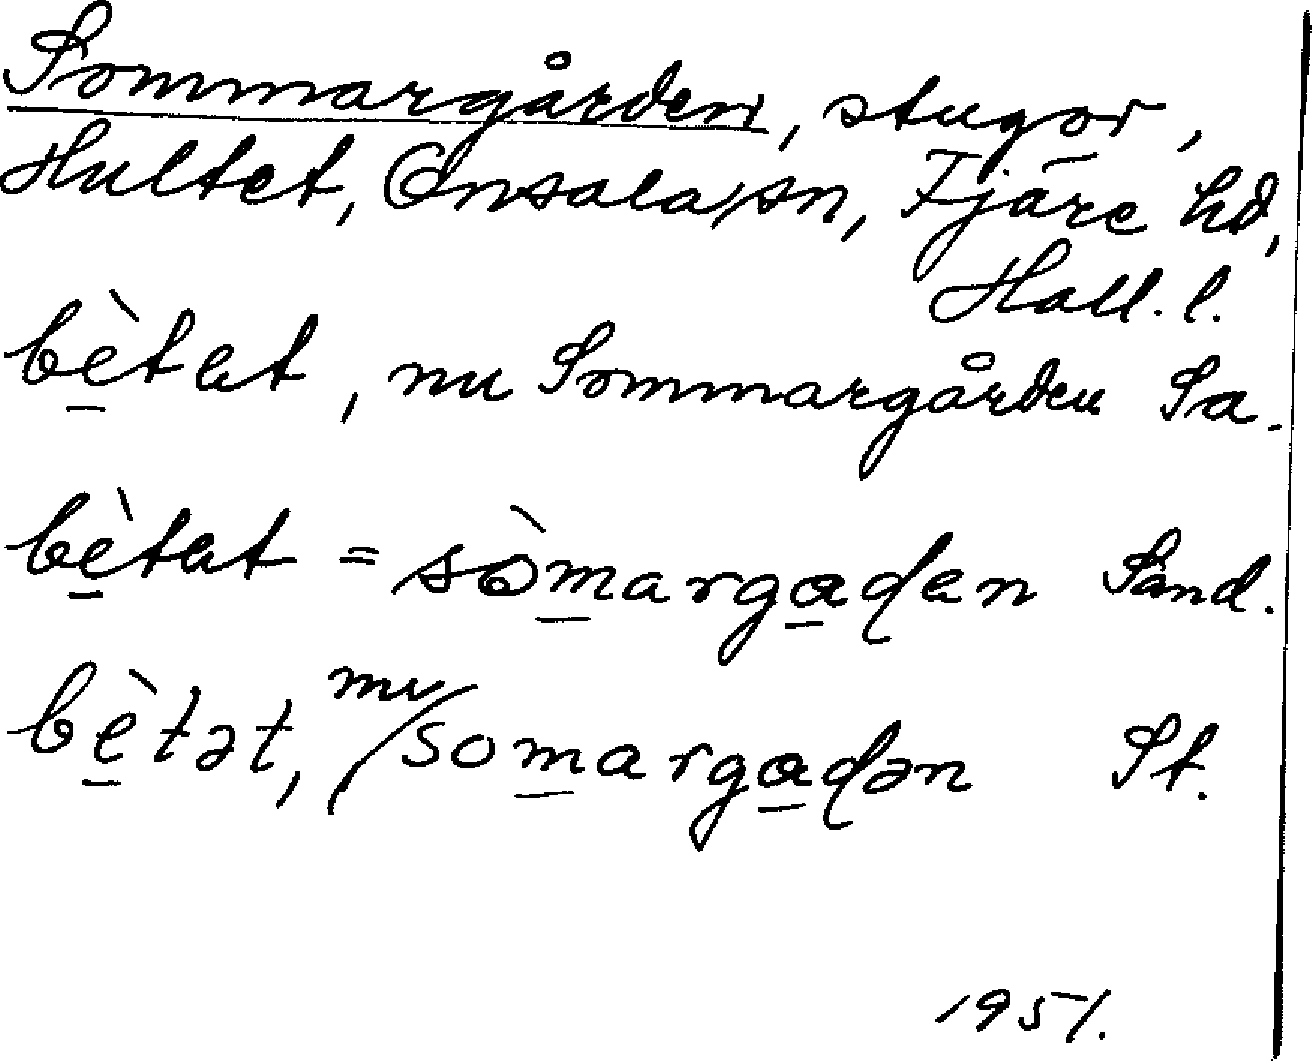 Sommargården, stugor,
Hultet, Onsala sn, Fjäre hd,
Hall. l.
bètat, nu Sommargården Sa.
bètat = sòmargɑɖen Sand.
bètət, nu somargɑɖən St.
1951.